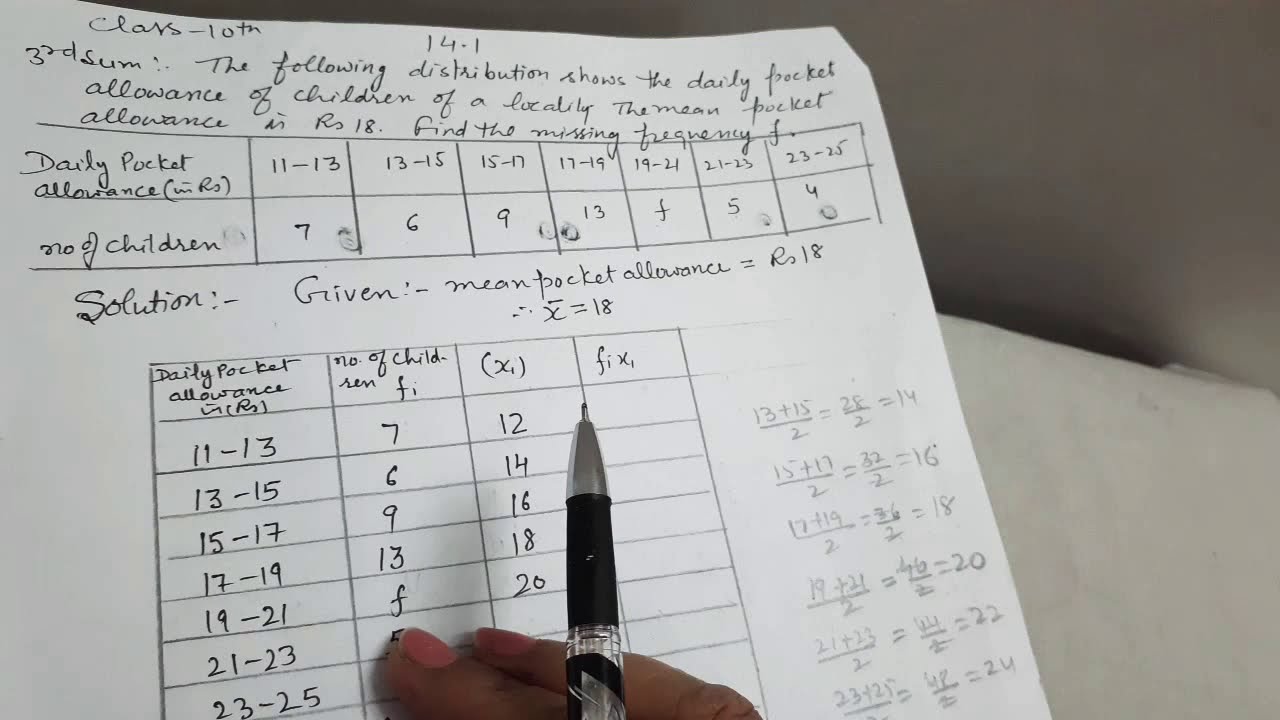 Class-10th
14.1
3rd Sum:- The following distribution shows the daily pocket
allowance of children of a locality The mean pocket
allowance is Rs 18. Find the missing frequency f.
Daily Pocket allowance (in Rs) 11-13 13-15 15-17 17-19 19-21 21-23 23-25
no of children 7 6 9 13 f 5 4
Solution:- Given:- mean pocket allowance = Rs 18
∴ x̄ = 18
Daily Pocket allowance in (Rs) no. of children fi (xi) fixi
11-13 7 12
13-15 6 14
15-17 9 16
17-19 13 18
19-21 f 20
21-23
23-25
13+15/2 = 28/2 = 14
15+17/2 = 32/2 = 16
17+19/2 = 36/2 = 18
19+21/2 = 40/2 = 20
21+23/2 = 44/2 = 22
23+25/2 = 48/2 = 24